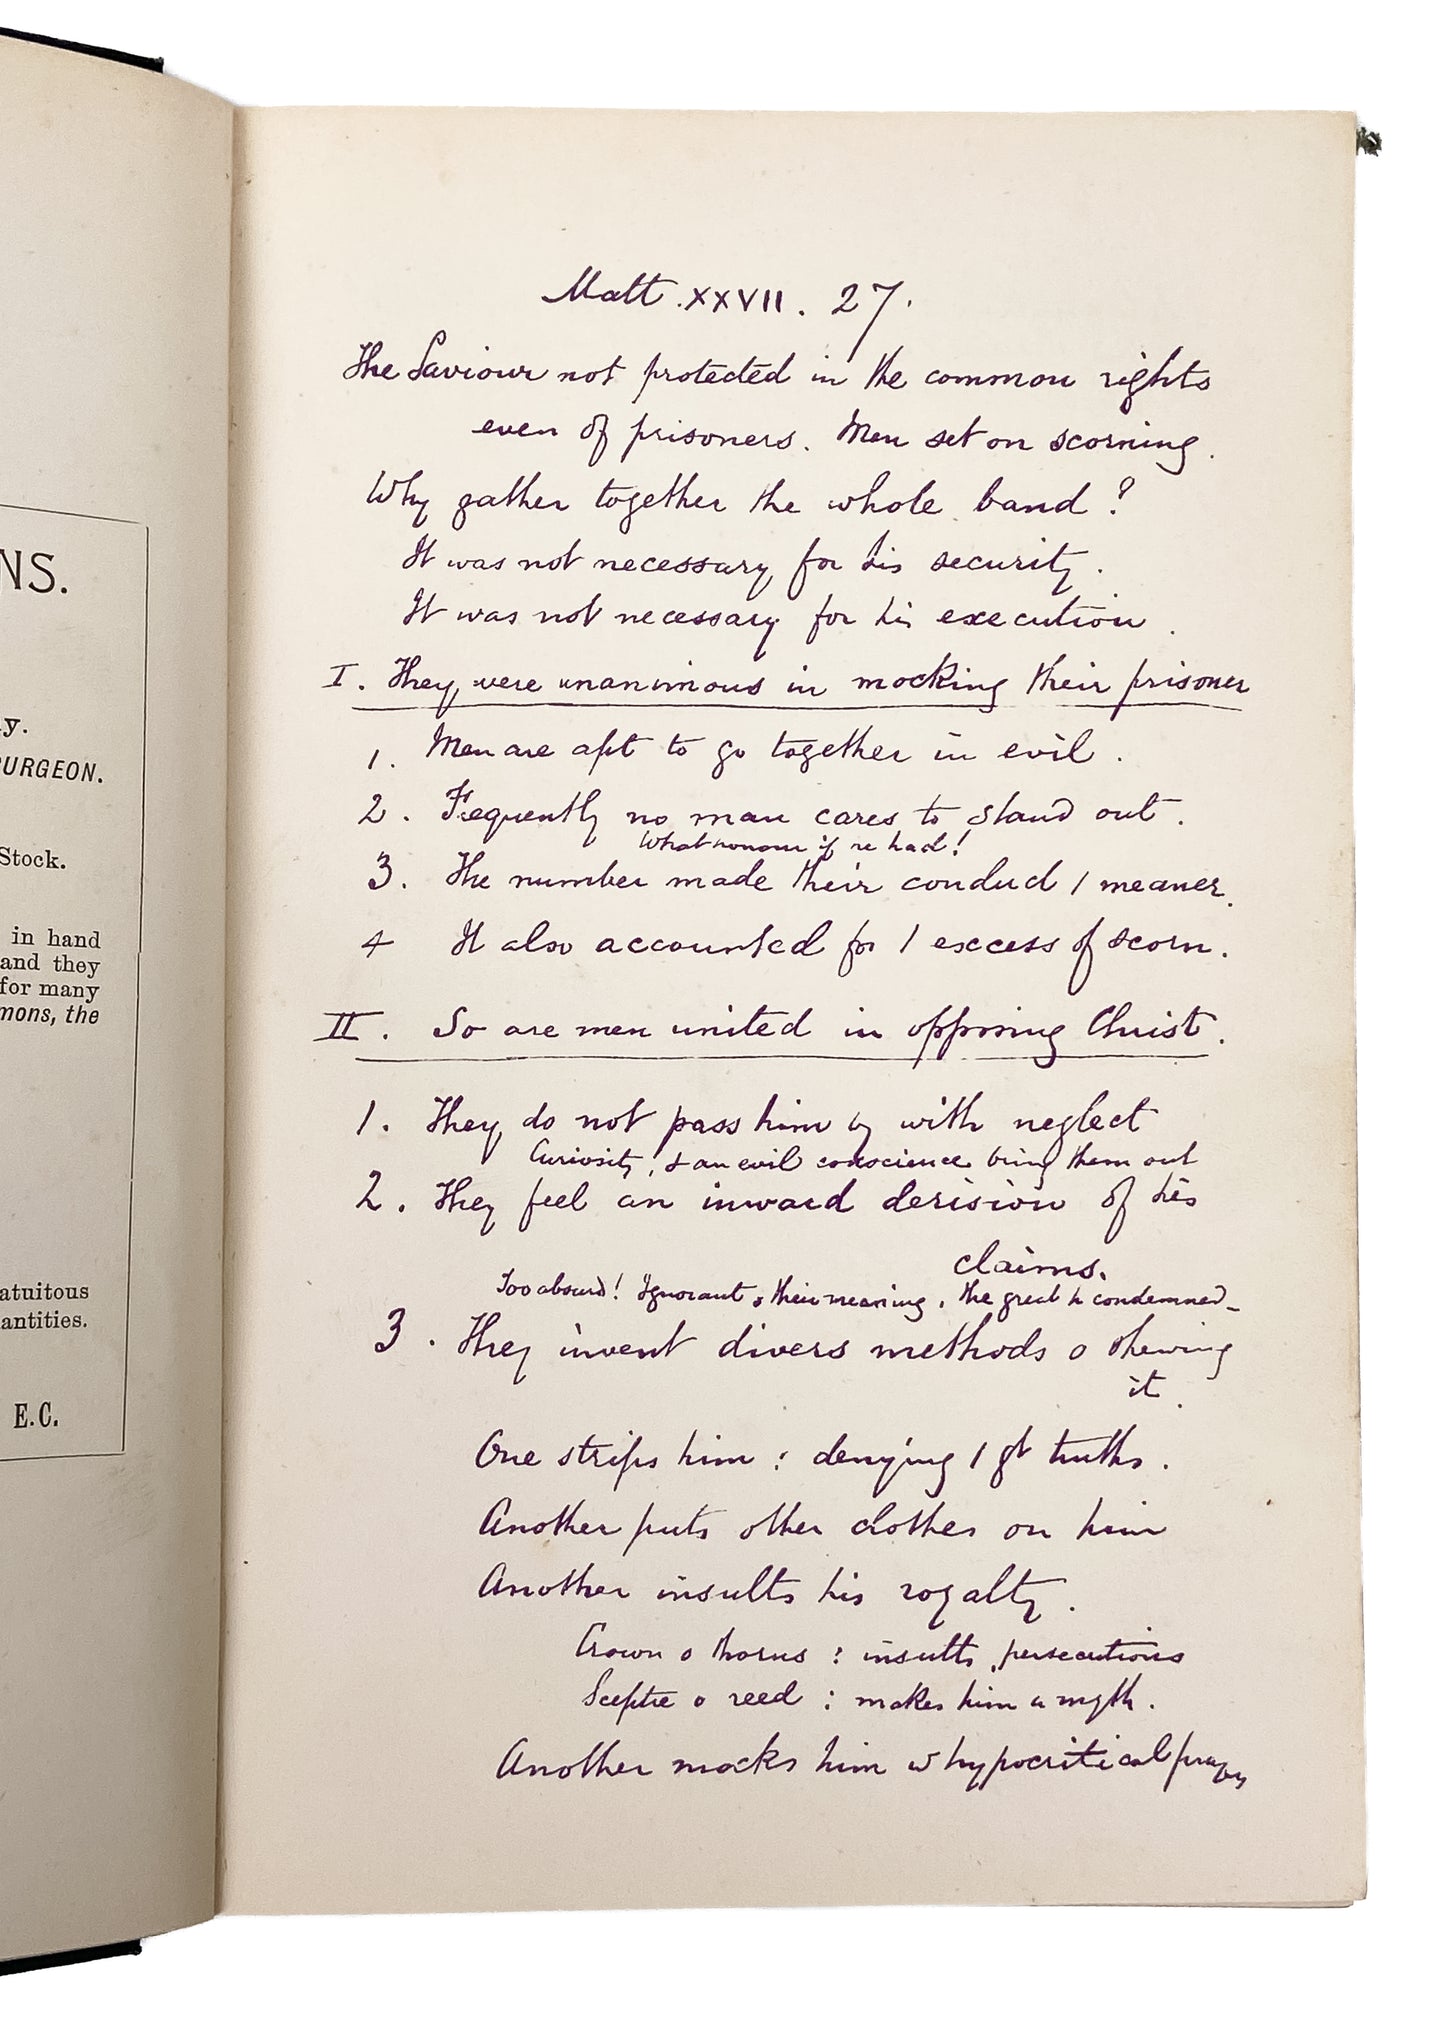 NS.
y.
URGEON.
Stock.
in hand
and they
for many
mons, the
atuitous
antities.
E.C.
Matt. XXVII. 27.
The Saviour not protected in the common rights
even of prisoners. Men set on scorning.
Why gather together the whole band?
It was not necessary for his security.
It was not necessary for his execution.
I. They were unanimous in mocking their prisoner
1. Men are apt to go together in evil.
2. Frequently no man cares to stand out.
What honour if he had!
3. The number made their conduct / meaner.
4 It also accounted for / excess of scorn.
II. So are men united in opposing Christ.
1. They do not pass him by with neglect
Curiosity, & an evil conscience bring them out
2. They feel an inward derision of his
claims.
Too absurd! Ignorant o their meaning, the great h condemned_
3. They invent divers methods o shewing
it.
One strips him: denying / gt truths.
Another puts other clothes on him
Another insults his royalty.
Crown o thorns: insults, persecutions
Sceptre o reed: makes him a myth.
Another mocks him w hypocritical